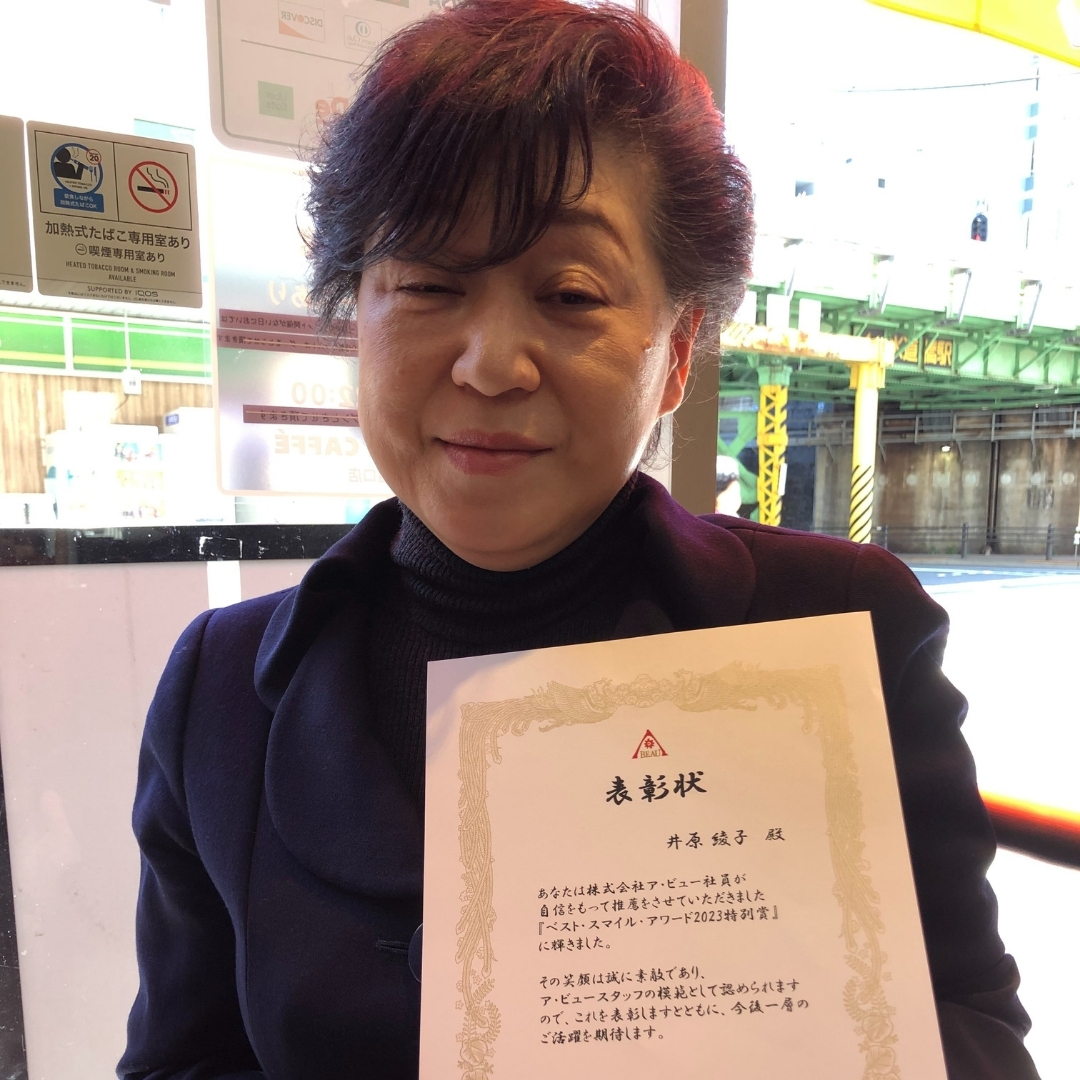 DISCOVER
加熱式たばこ専用室あり
喫煙専用室あり
HEATED TOBACCO ROOM & SMOKING ROOM
AVAILABLE
SUPPORTED BY IQOS
CAFFÉ
BEAU
表彰状
井原 綾子 殿
あなたは株式会社ア・ビュー社員が
自信をもって推薦をさせていただきました
『ベスト・スマイル・アワード2023特別賞』
に輝きました。
その笑顔は誠に素敵であり、
ア・ビュースタッフの模範として認められます
ので、これを表彰しますとともに、今後一層の
ご活躍を期待します。